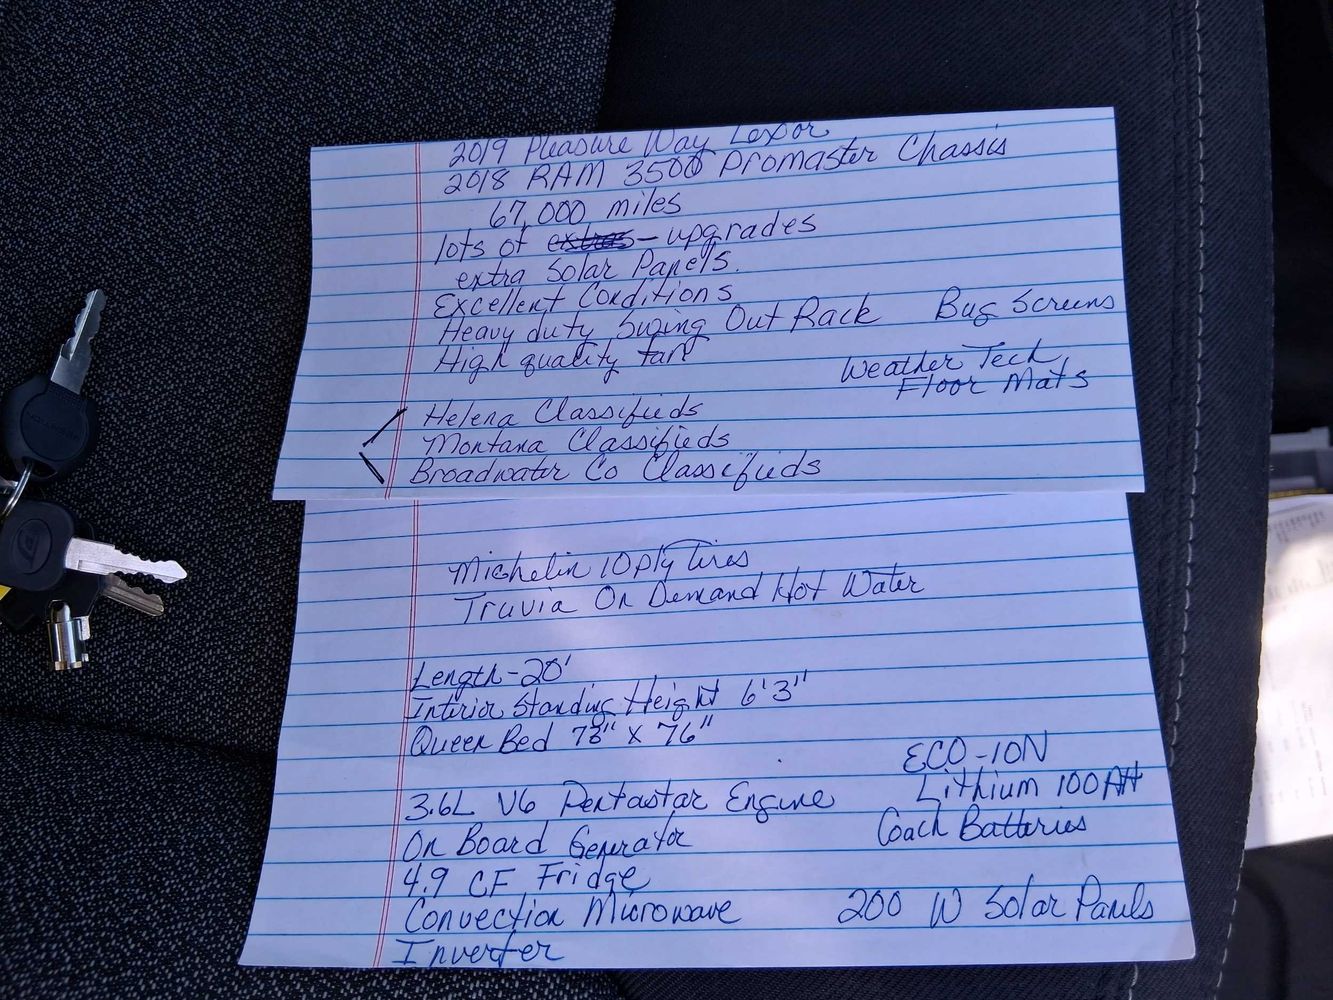 2019 Pleasure Way Lexor
2018 RAM 3500 Promaster Chassis
67,000 miles
lots of extras - upgrades
extra Solar Panels.
Excellent Conditions
Heavy duty Swing Out Rack Bug Screens
High quality fan
Weather Tech
Floor Mats
Helena Classifieds
Montana Classifieds
Broadwater Co Classifieds
Michelin 10 ply tires
Truvia On Demand Hot Water
Length - 20'
Interior Standing Height 6'3"
Queen Bed 73" x 76"
ECO-ION
Lithium 100 AH
Coach Batteries
3.6L V6 Pentastar Engine
On Board Generator
4.9 CF Fridge
Convection Microwave 200 W Solar Panels
Inverter